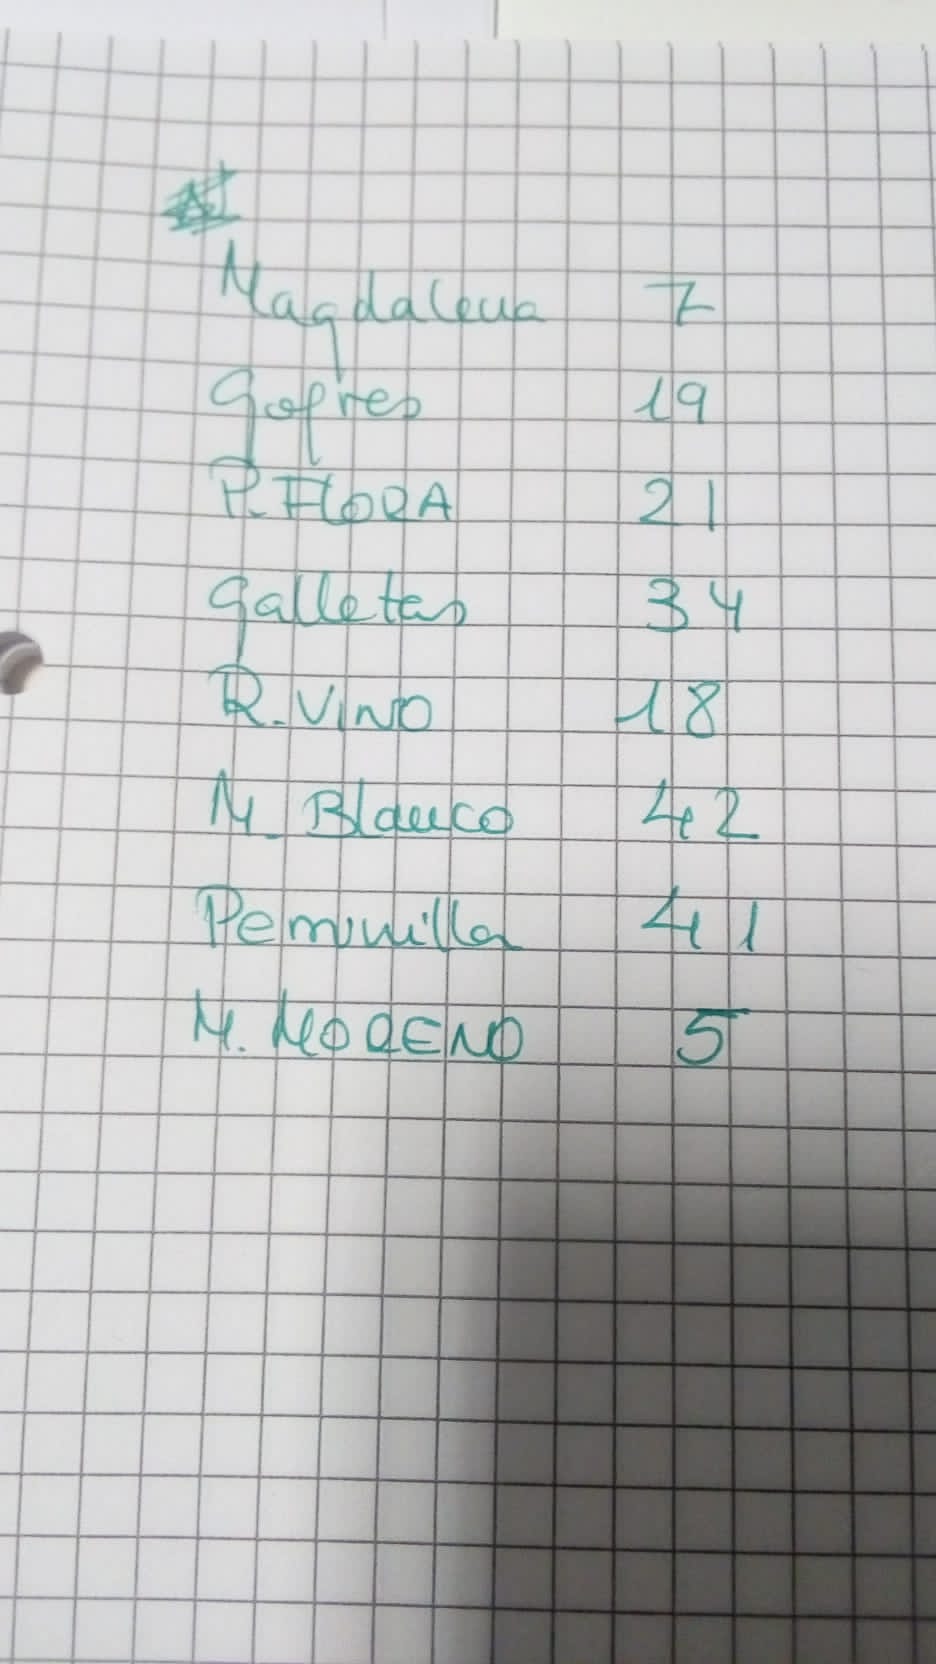 Magdalena 7
Gofres 19
P. FLORA 21
Galletas 34
R. VINO 18
M. Blanco 42
41
M. MORENO 5